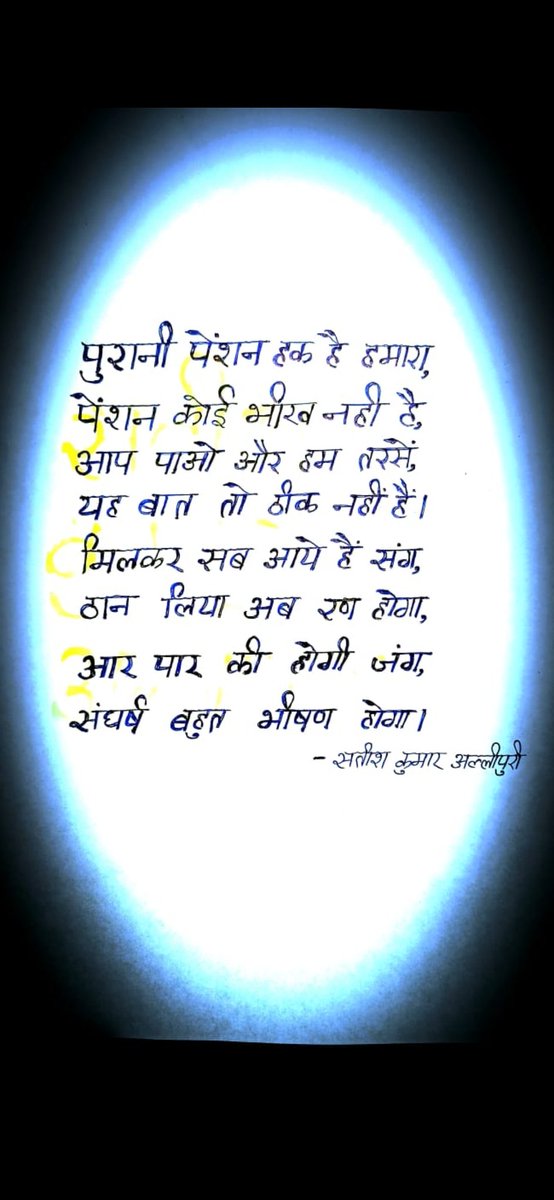 पुरानी पेंशन हक है हमारा,
पेंशन कोई भीख नही है,
आप पाओ और हम तरसें,
यह बात तो ठीक नहीं हैं।
मिलकर सब आये हैं संग,
ठान लिया अब रण होगा,
आर पार की होगी जंग,
संघर्ष बहुत भीषण होगा।
- सतीश कुमार अल्लीपुरी